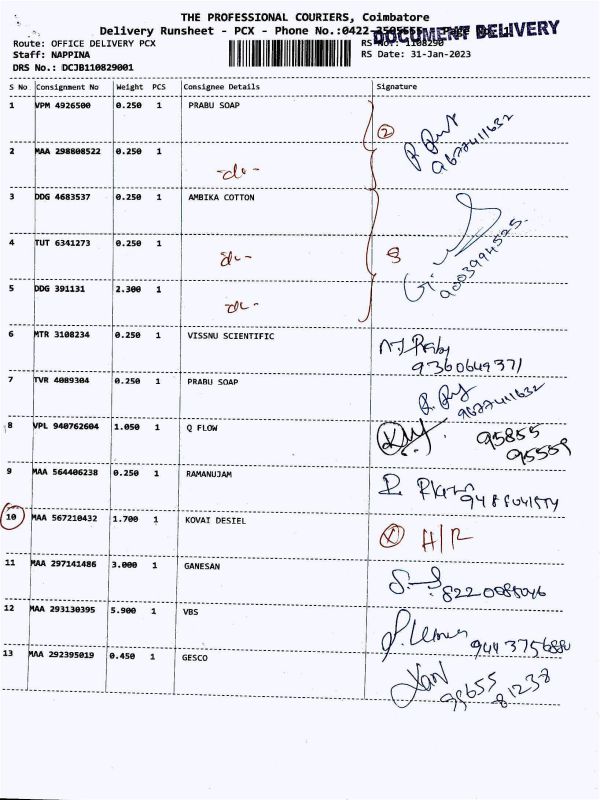 THE PROFESSIONAL COURIERS, Coimbatore
Delivery Runsheet - PCX - Phone No.:0422
DOCUMENT DELIVERY
Route: OFFICE DELIVERY PCX
RS No.: 1108290
Staff: NAPPINA
RS Date: 31-Jan-2023
DRS No.: DCJB110829001
S No Consignment No Weight PCS Consignee Details Signature
1 VPM 4926500 0.250 1 PRABU SOAP
2
9677411632
2 MAA 298808522 0.250 1
3 DDG 4683537 0.250 1 AMBIKA COTTON
4 TUT 6341273 0.250 1
3
9003994525
5 DDG 391131 2.300 1
6 MTR 3108234 0.250 1 VISSNU SCIENTIFIC
9360649371
7 TVR 4089304 0.250 1 PRABU SOAP
9677411632
8 VPL 940762604 1.050 1 Q FLOW
95855
95559
9 MAA 564406238 0.250 1 RAMANUJAM
10 MAA 567210432 1.700 1 KOVAI DESIEL
X H/R
11 MAA 297141486 3.000 1 GANESAN
12 MAA 293130395 5.900 1 VBS
13 MAA 292395019 0.450 1 GESCO
99655
81238